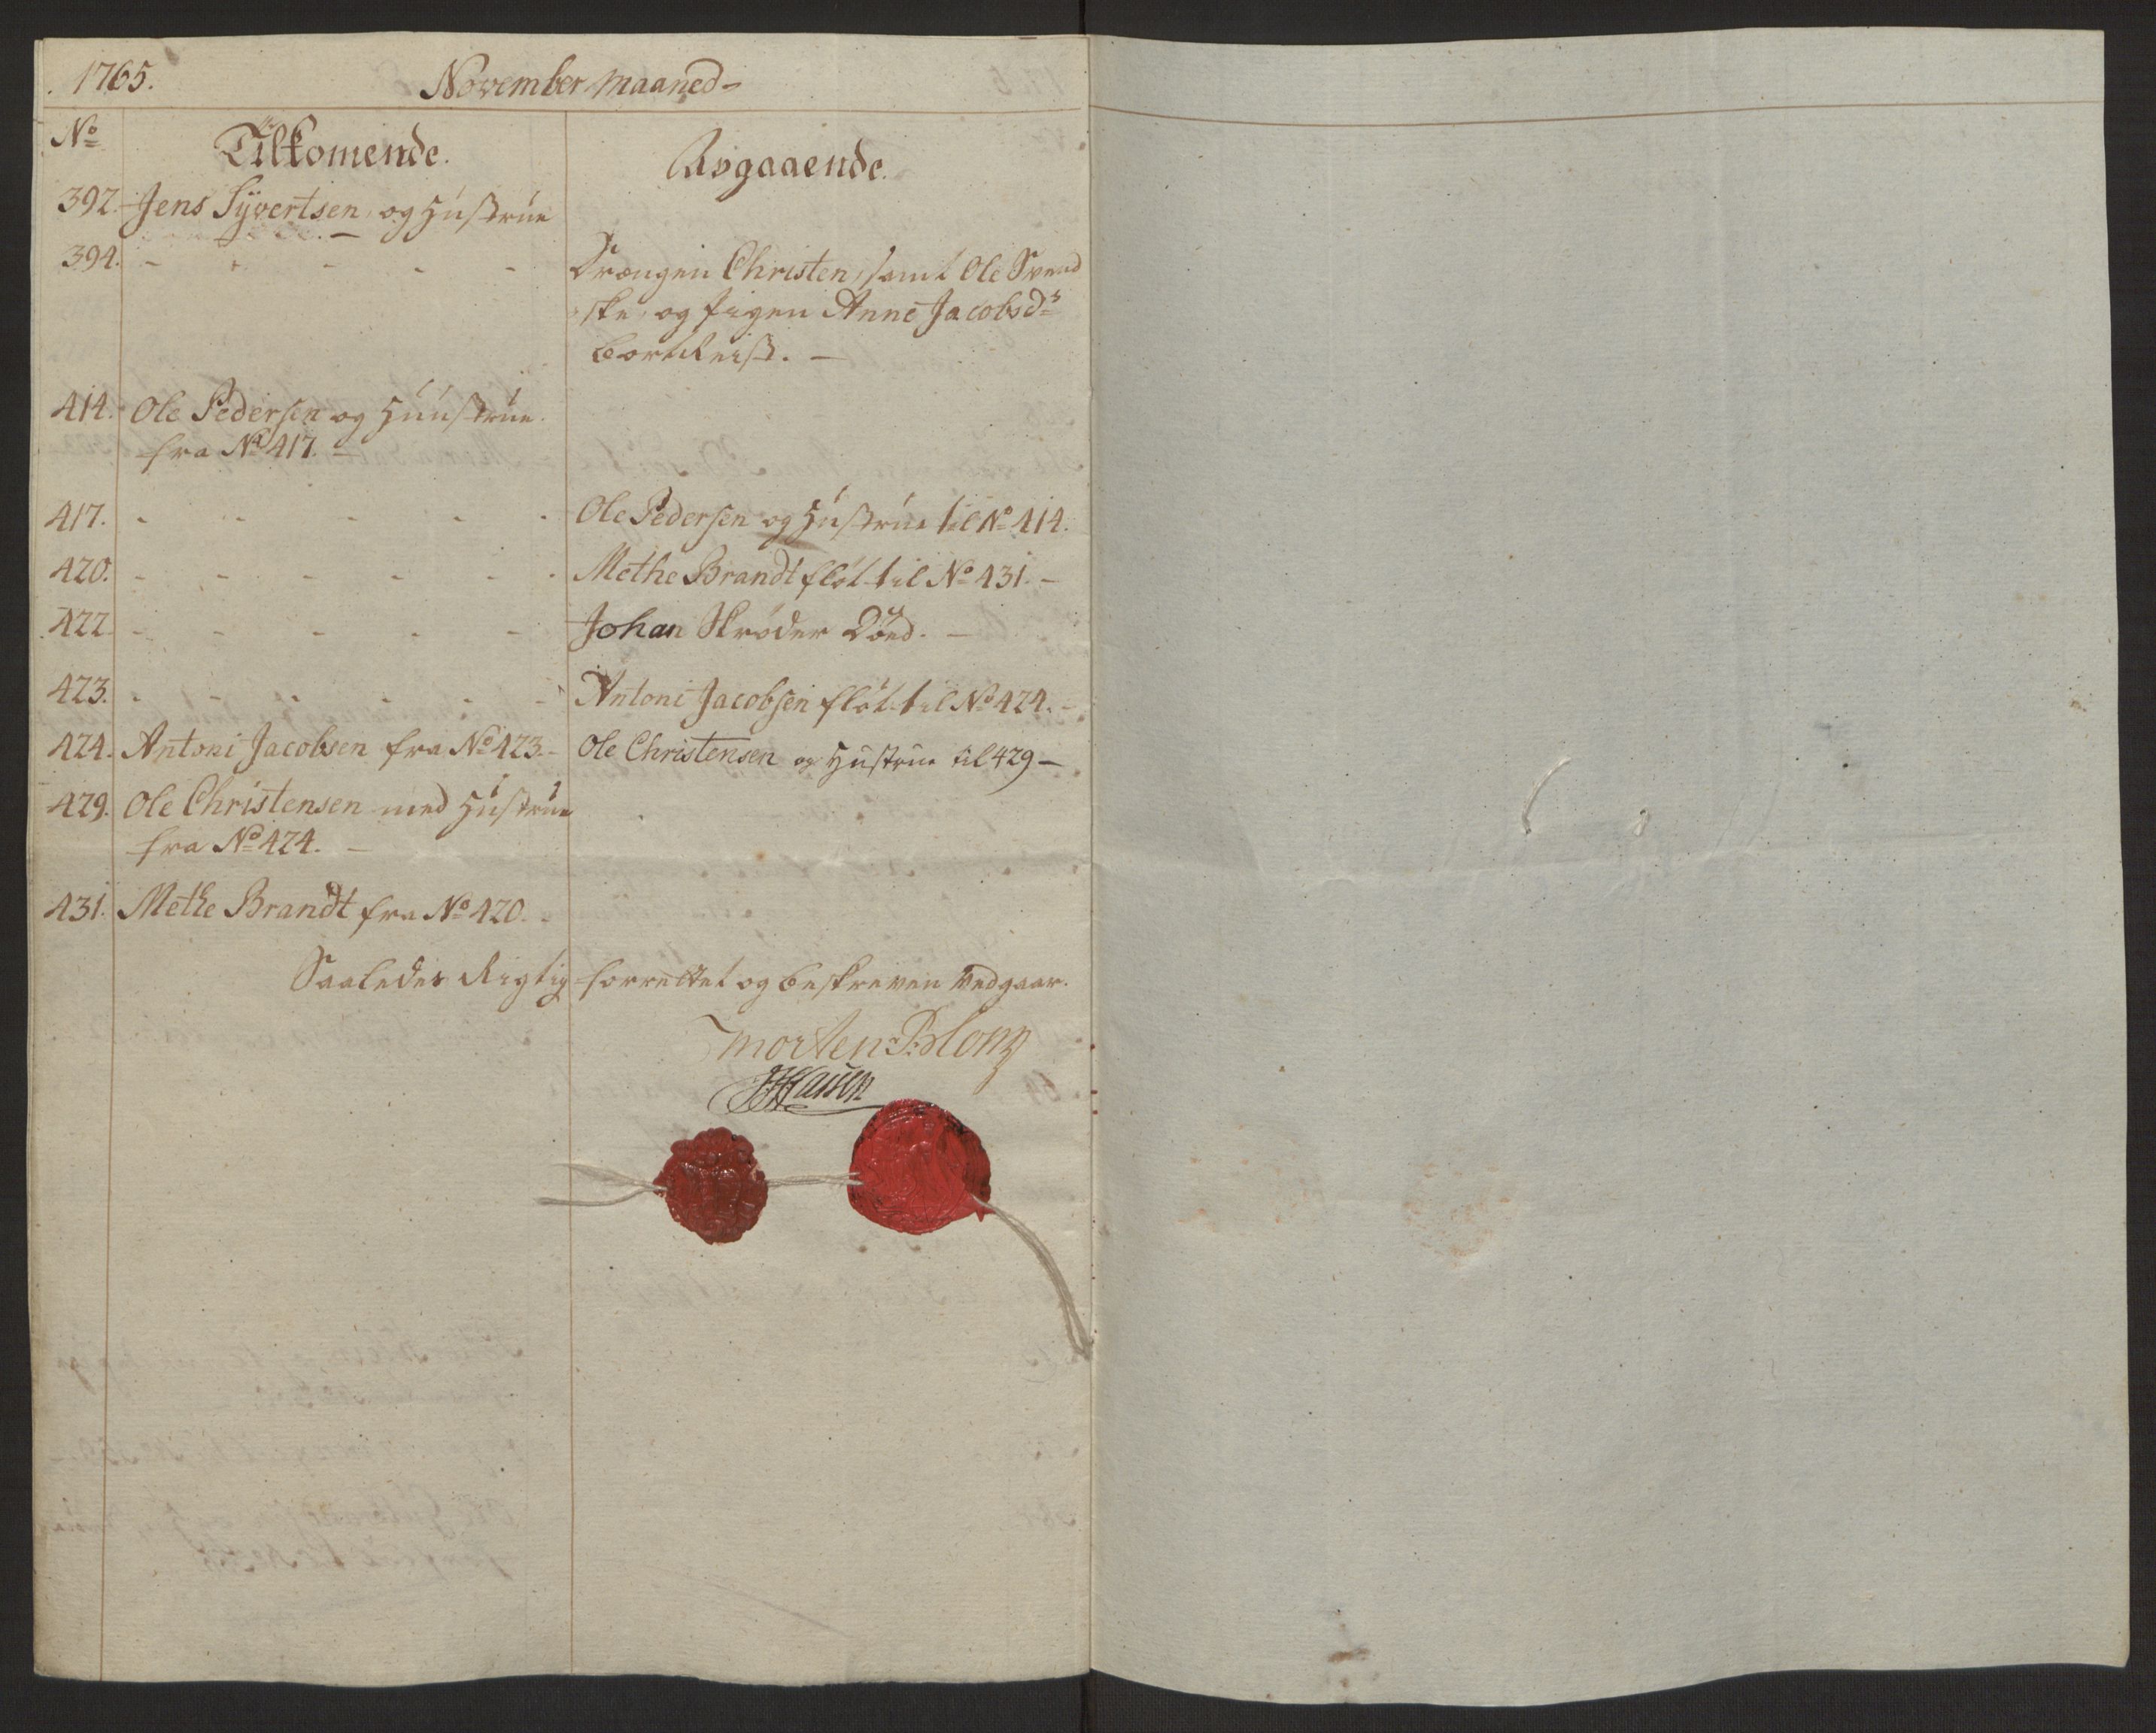 1765. November Maaned-
No Tilkomende. Avgaaende.
392. Jens Syvertsen, og Hustrue
394. - - - - - Drængen Christen, samt Ole Svend
ske, og Pigen Anne Jacobsdr
bortReist. -
414. Ole Pedersen og Huustrue
fra No 417. -
417. - - - - - Ole Pedersen og Hustrue til No 414.
420. - - - - - - Methe Brandt fløt til No 431. -
422. - - - - - Johan Skrøder Død. -
423. - - - - - - Antoni Jacobsen fløt til No 424. -
424. Antoni Jacobsen fra No 423. - Ole Christensen og Hustrue til 429 -
429. Ole Christensen med Hustrue
fra No 424. -
431. Methe Brandt fra No 420. -
Saaledes Rigtig forrettet og beskreven Vedgaar.
Morten